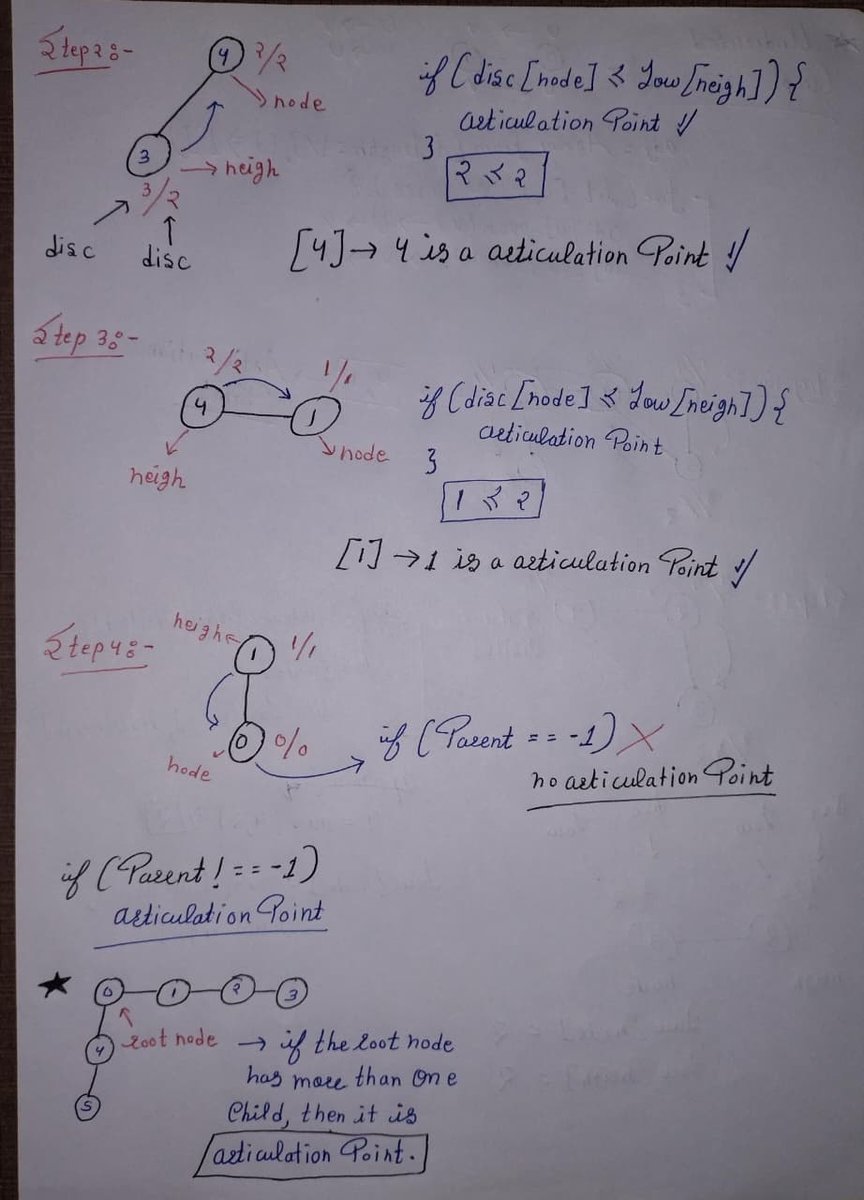 Step 2:-
4 2/2
node
3
neigh
3/2
disc
disc
if (disc [node] ≤ Low [neigh]) {
articulation Point
}
2 ≤ 2
[4] → 4 is a articulation Point
Step 3:-
2/2 1/1
4 1
neigh
node
if (disc [node] ≤ Low [neigh]) {
articulation Point
}
1 ≤ 2
[1] → 1 is a articulation Point
Step 4:-
neigh
1 1/1
0 0/0
node
if (Parent == -1) X
no articulation Point
if (Parent !== -1)
articulation Point
★ 0 1 2 3
4 root node → if the root node
has more than one
5 Child, then it is
articulation Point.